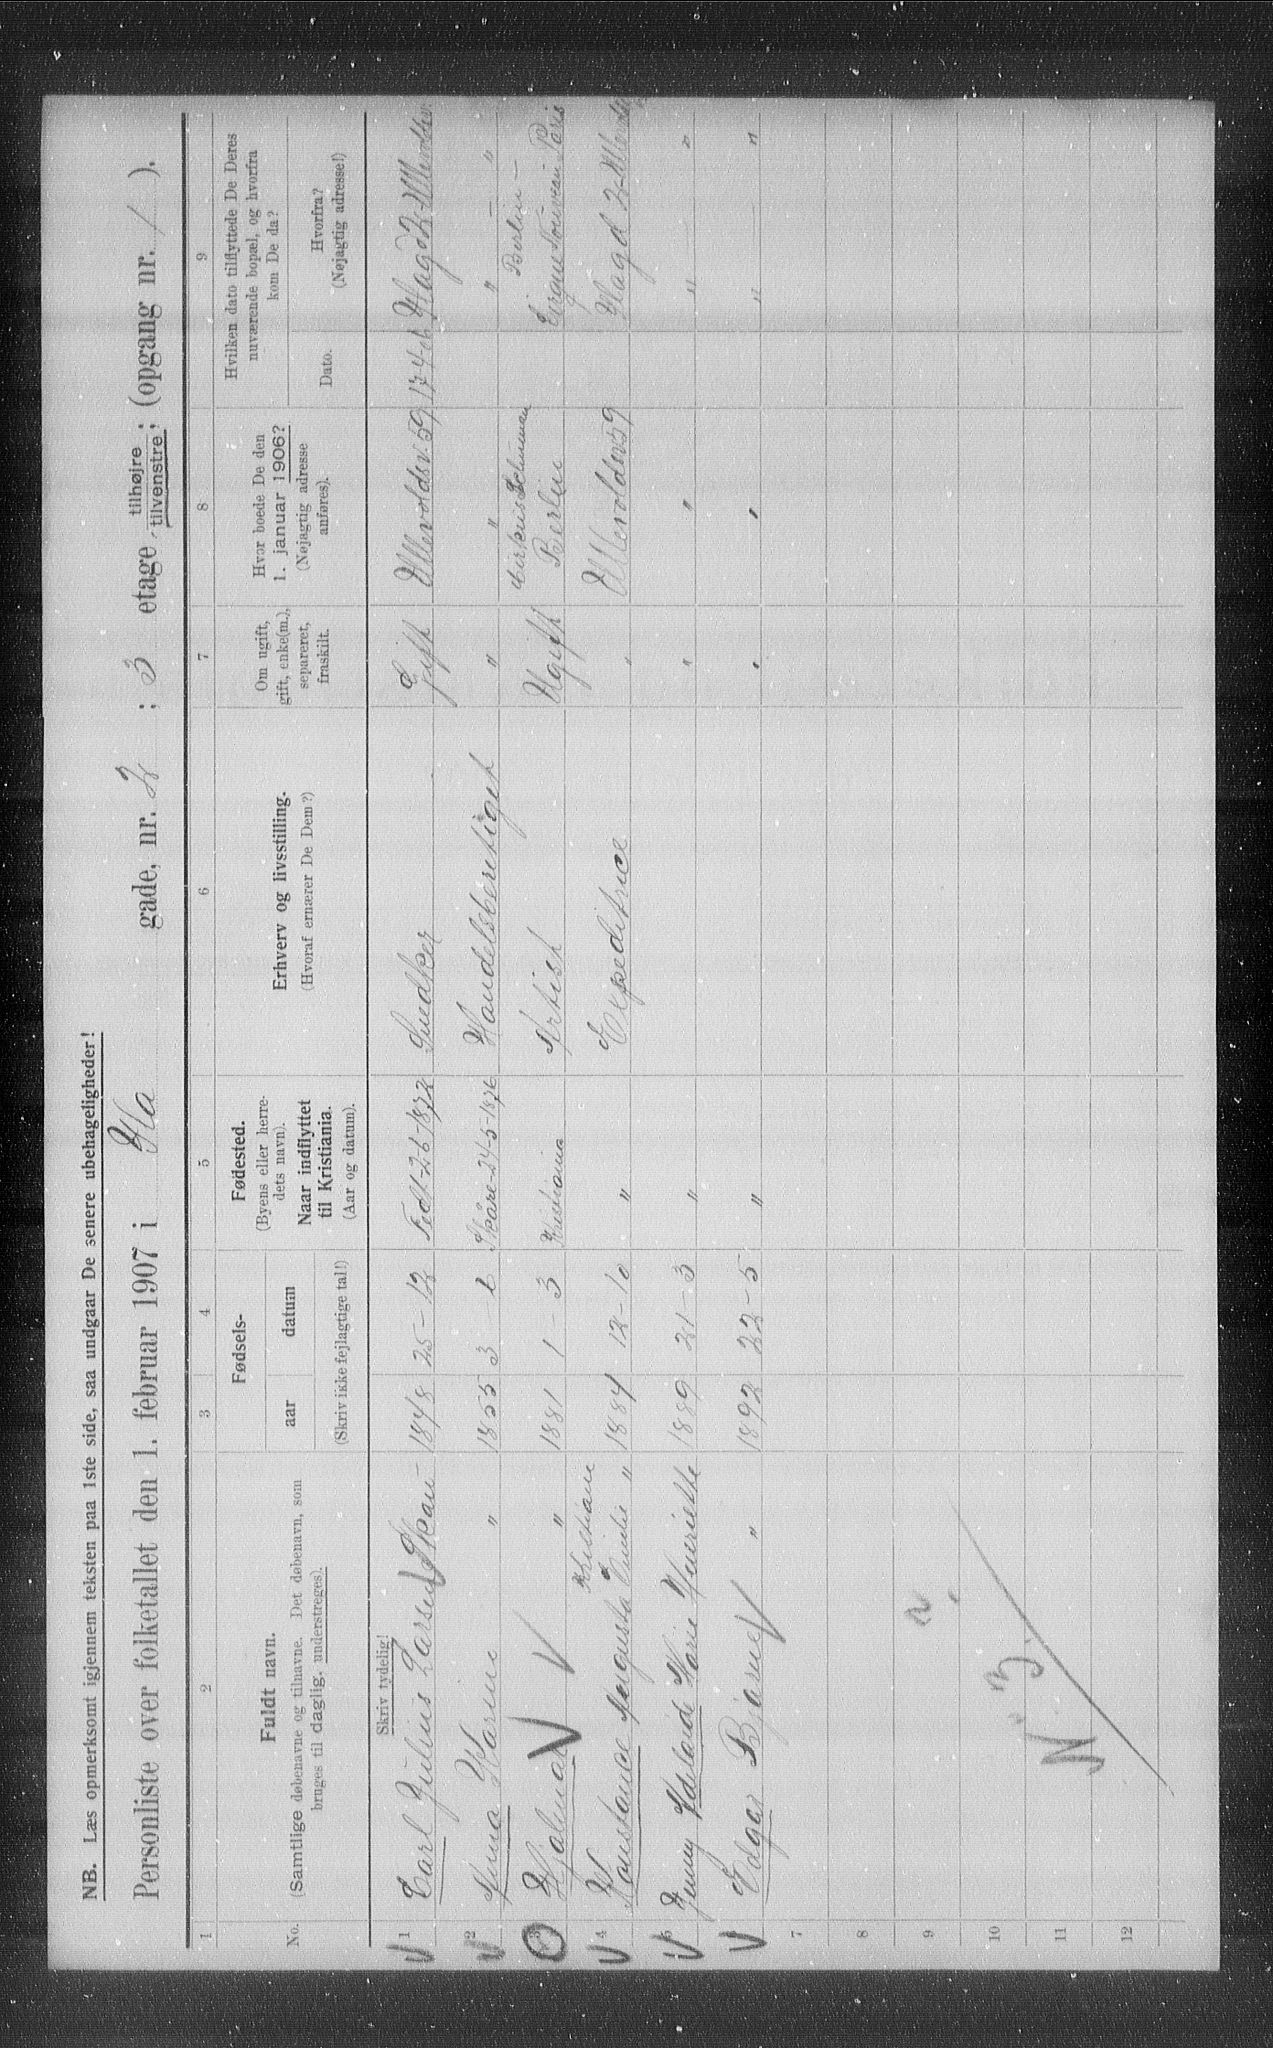 NB. Læs opmerksomt igjennem teksten paa 1ste side, saa undgaar De senere ubehageligheder!
Personliste over folketallet den 1. februar 1907 i Ila gade, nr. 2 ; 3 etage tilhøjre tilvenstre ; (opgang nr. / ).
1 2 3 4 5 6 7 8 9
No.
Fuldt navn.
(Samtlige døbenavne og tilnavne. Det døbenavn, som
bruges til daglig, understreges).
Fødsels-
aar datum
(Skriv ikke fejlagtige tal!)
Fødested.
(Byens eller herre-
dets navn).
Naar indflyttet
til Kristiania.
(Aar og datum).
Erhverv og livsstilling.
(Hvoraf ernærer De Dem?)
Om ugift,
gift, enke(m.),
separeret,
fraskilt.
Hvor boede De den
1. januar 1906?
(Nøjagtig adresse
anføres).
Hvilken dato tilflyttede De Deres
nuværende bopæl, og hvorfra
kom De da?
Dato.
Hvorfra?
(Nøjagtig adresse!)
Skriv tydelig!
1 Carl Julius Larsen Skau 1848 25-12 -26-1872 Snedker Gift Ullevoldsv 59 17-4-
2 Anna Karine " 1855 3 - 6 Skåre-24-5-1876 Handelsberetiget " " " - "
3 Hjalmar " 1881 1 - 3 Kristiania Artist Ugift Cirkus Schumann Berlin Berlin - Cirque Nouveau Paris
4 Konstance Augusta Kristiane Emilie " 1884 12-10 " Expeditrice " Ullevoldsv 59
5 Jenny Adelaide Marie Henriette 1889 21-3 " " " " "
6 Edgar Bjarne " 1892 22-5 " " " " "
7
8
9
10
11
12